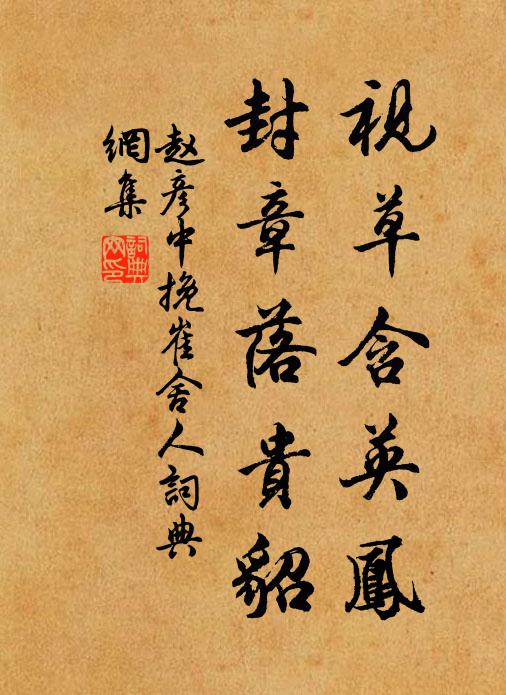 視草含英鳳
封章落貴貂
赵彦中挽崔舍人詞典
網集
詞典網印